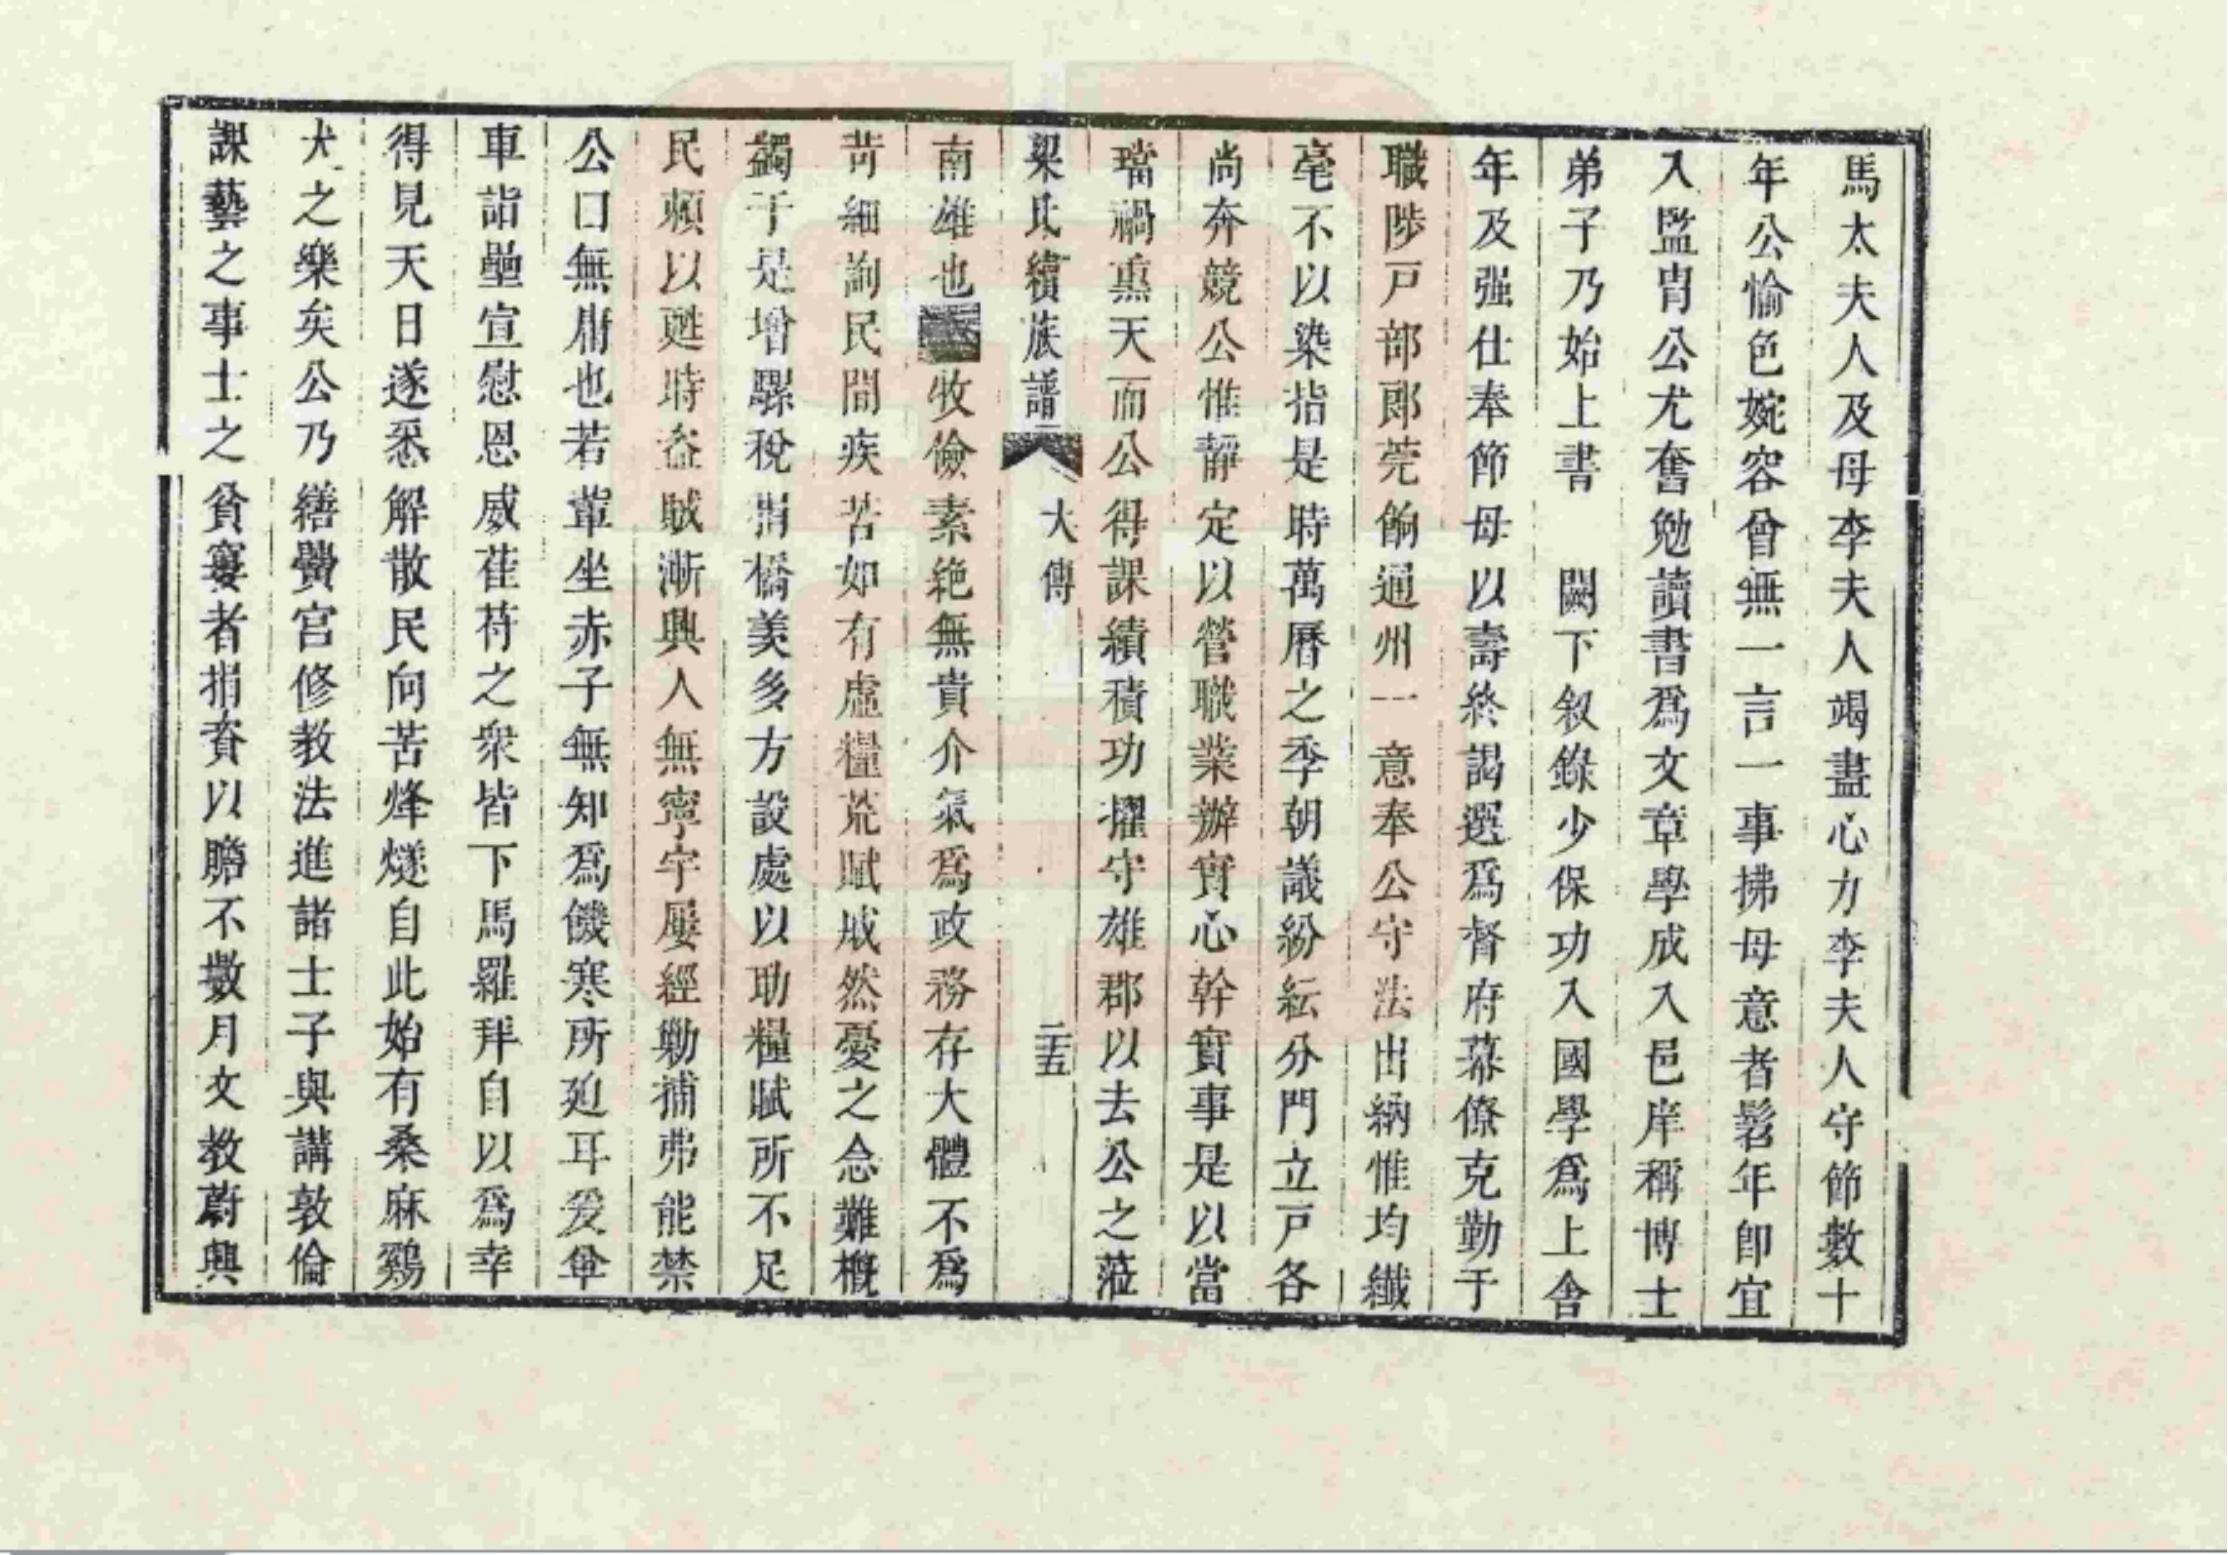 馬太夫人及母李夫人竭盡心力李夫人守節數十
年公愉色婉容曾無一言一事拂母意者髫年卽宜
入監胄公尤奮勉讀書爲文章學成入邑庠稱博士
弟子乃始上書 闕下叙錄少保功入國學爲上舍
年及强仕奉節母以壽終謁選爲督府幕僚克勤于
職陟戸部郎莞餉通州一意奉公守法出納惟均纎
毫不以染指是時萬曆之季朝議紛紜分門立戸各
尚奔競公惟靜定以營職業辦實心幹實事是以當
璫禍熏天而公得課績積功擢守雄郡以去公之蒞
梁氏續族譜 大傳 二十五
南雄也 收儉素絶無貴介氣爲政務存大體不爲
苛細詢民間疾苦如有虛糧荒賦戚然憂之念難槪
蠲于是增騾稅捐橋羙多方設處以助糧賦所不足
民賴以甦時盜賊漸興人無寧宇屢經勦捕弗能禁
公曰無庸也若輩坐赤子無知爲饑寒所廹耳爰單
車詣壘宣慰恩威萑苻之衆皆下馬羅拜自以爲幸
得見天日遂悉解散民向苦烽燧自此始有桑麻鷄
犬之樂矣公乃繕黌宮修教法進諸士子與講敦倫
課藝之事士之貧窶者捐賚以贍不數月文教蔚興